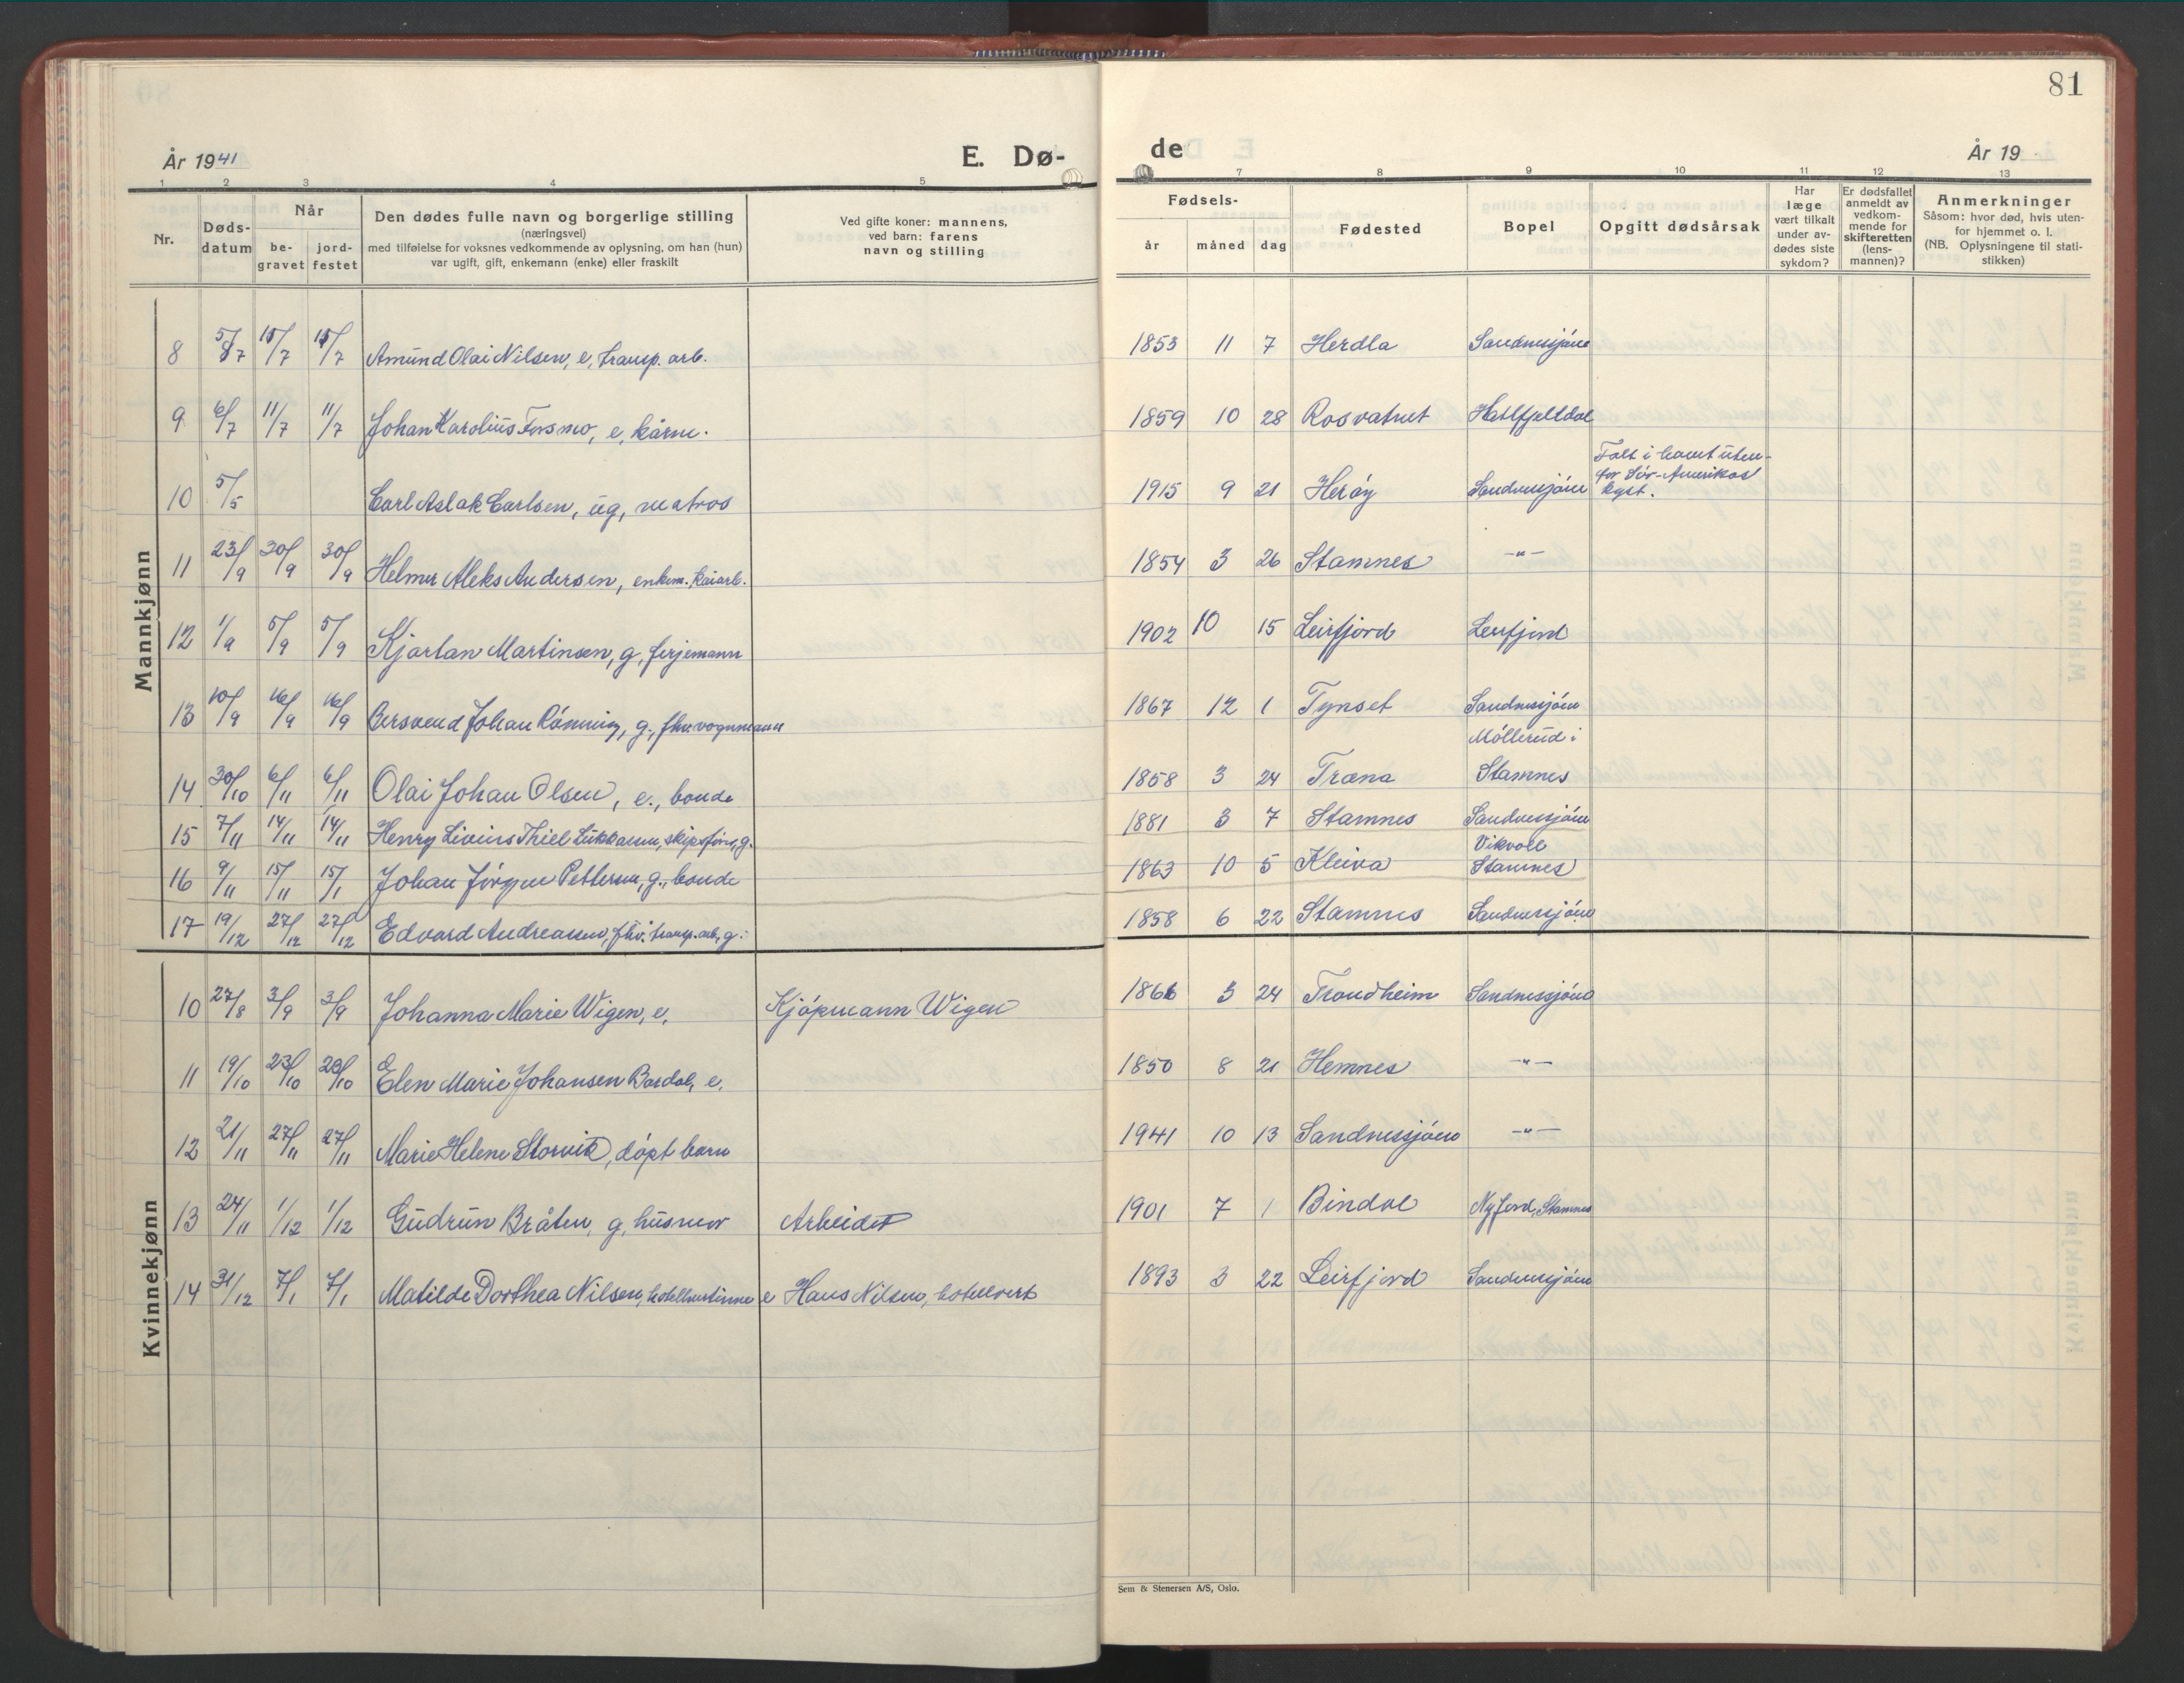 81
År 1941
E. Dø-
de
År 19
1 2 3 4 5
7 8 9 10 11 12 13
Nr.
Døds-
datum
Når
be-
gravet
jord-
festet
Den dødes fulle navn og borgerlige stilling
(næringsvei)
med tilføielse for voksnes vedkommende av oplysning, om han (hun)
var ugift, gift, enkemann (enke) eller fraskilt
Ved gifte koner: mannens,
ved barn: farens
navn og stilling
Fødsels-
år måned dag
Fødested
Bopel
Opgitt dødsårsak
Har
læge
vært tilkalt
under av-
dødes siste
sykdom?
Er dødsfallet
anmeldt av
vedkom-
mende for
skifteretten
(lens-
mannen)?
Anmerkninger
Såsom: hvor død, hvis uten-
for hjemmet o. l.
(NB. Oplysningene til stati-
stikken)
Mannkjønn
8 5/7 15/7 15/7 Amund Olai Nilsen, e, transp. arb. 1853 11 7 Herdla Sandnessjøen
9 6/7 11/7 11/7 Johan Karolius Forsmo, e, kårm. 1859 10 28 Rosvatnet Hattfjelldal
10 5/5 Carl Aslak Carlsen, ug, matros 1915 9 21 Herøy Sandnessjøen Falt i havet uten-
for Sør-Amerikas
kyst.
11 23/9 30/9 30/9 Helmer Aleks Andersen, enkem. kaiarb. 1854 3 26 Stamnes -"-
12 1/9 5/9 5/9 Kjartan Martinsen, g, ferjemann 1902 10 15 Leirfjord Leirfjord
13 10/9 16/9 16/9 Bersvend Johan Rønning, g., fhv. vognmann 1867 12 1 Tynset Sandnessjøen
14 30/10 6/11 6/11 Olai Johan Olsen, e., bonde 1858 3 24 Træna Møllerud i
Stamnes
15 7/11 14/11 14/11 Henry Livius Thiel Lukkassen, skipsfører, g. 1881 3 7 Stamnes Sandnessjøen
16 9/11 15/11 15/1 Johan Jørgen Pettersen, g., bonde 1863 10 5 Kleiva Vikvoll
Stamnes
17 19/12 27/12 27/12 Edvard Andreassen, fhv. transp. arb, g. 1858 6 22 Stamnes Sandnessjøen
Kvinnekjønn
10 27/8 3/9 3/9 Johanna Marie Wigen, e, Kjøpmann Wigen 1866 3 24 Trondheim Sandnessjøen
11 19/10 23/10 23/10 Elen Marie Johansen Bardal, e. 1850 8 21 Hemnes -"-
12 21/11 27/11 27/11 Marie Helene Storvik, døpt barn 1941 10 13 Sandnessjøen -"-
13 24/11 1/12 1/12 Gudrun Bråten, g, husmor Arbeider 1901 7 1 Bindal Nyjord, Stamnes
14 31/12 7/1 7/1 Matilde Dorthea Nilsen, hotellvertinne e Hans Nilsen, hotellvert 1893 3 22 Leirfjord Sandnessjøen
Sem & Stenersen A/S, Oslo.